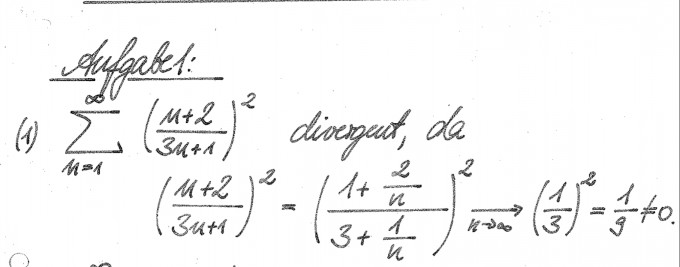 Aufgabe 1:
(1) ∑_{n=1}^{∞} ((n+2)/(3n+1))² divergent, da
((n+2)/(3n+1))² = ((1+2/n)/(3+1/n))² →_{n→∞} (1/3)² = 1/9 ≠ 0.